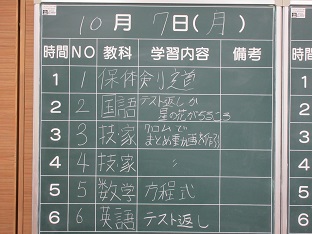 10月7日(月)
時間 NO 教科 学習内容 備考
1 1 保体 剣道
2 2 国語 テスト返し 星の花が
3 3 技家 クロムで まとめ動画
4 4 技家 〃
5 5 数学 方程式
6 6 英語 テスト返し